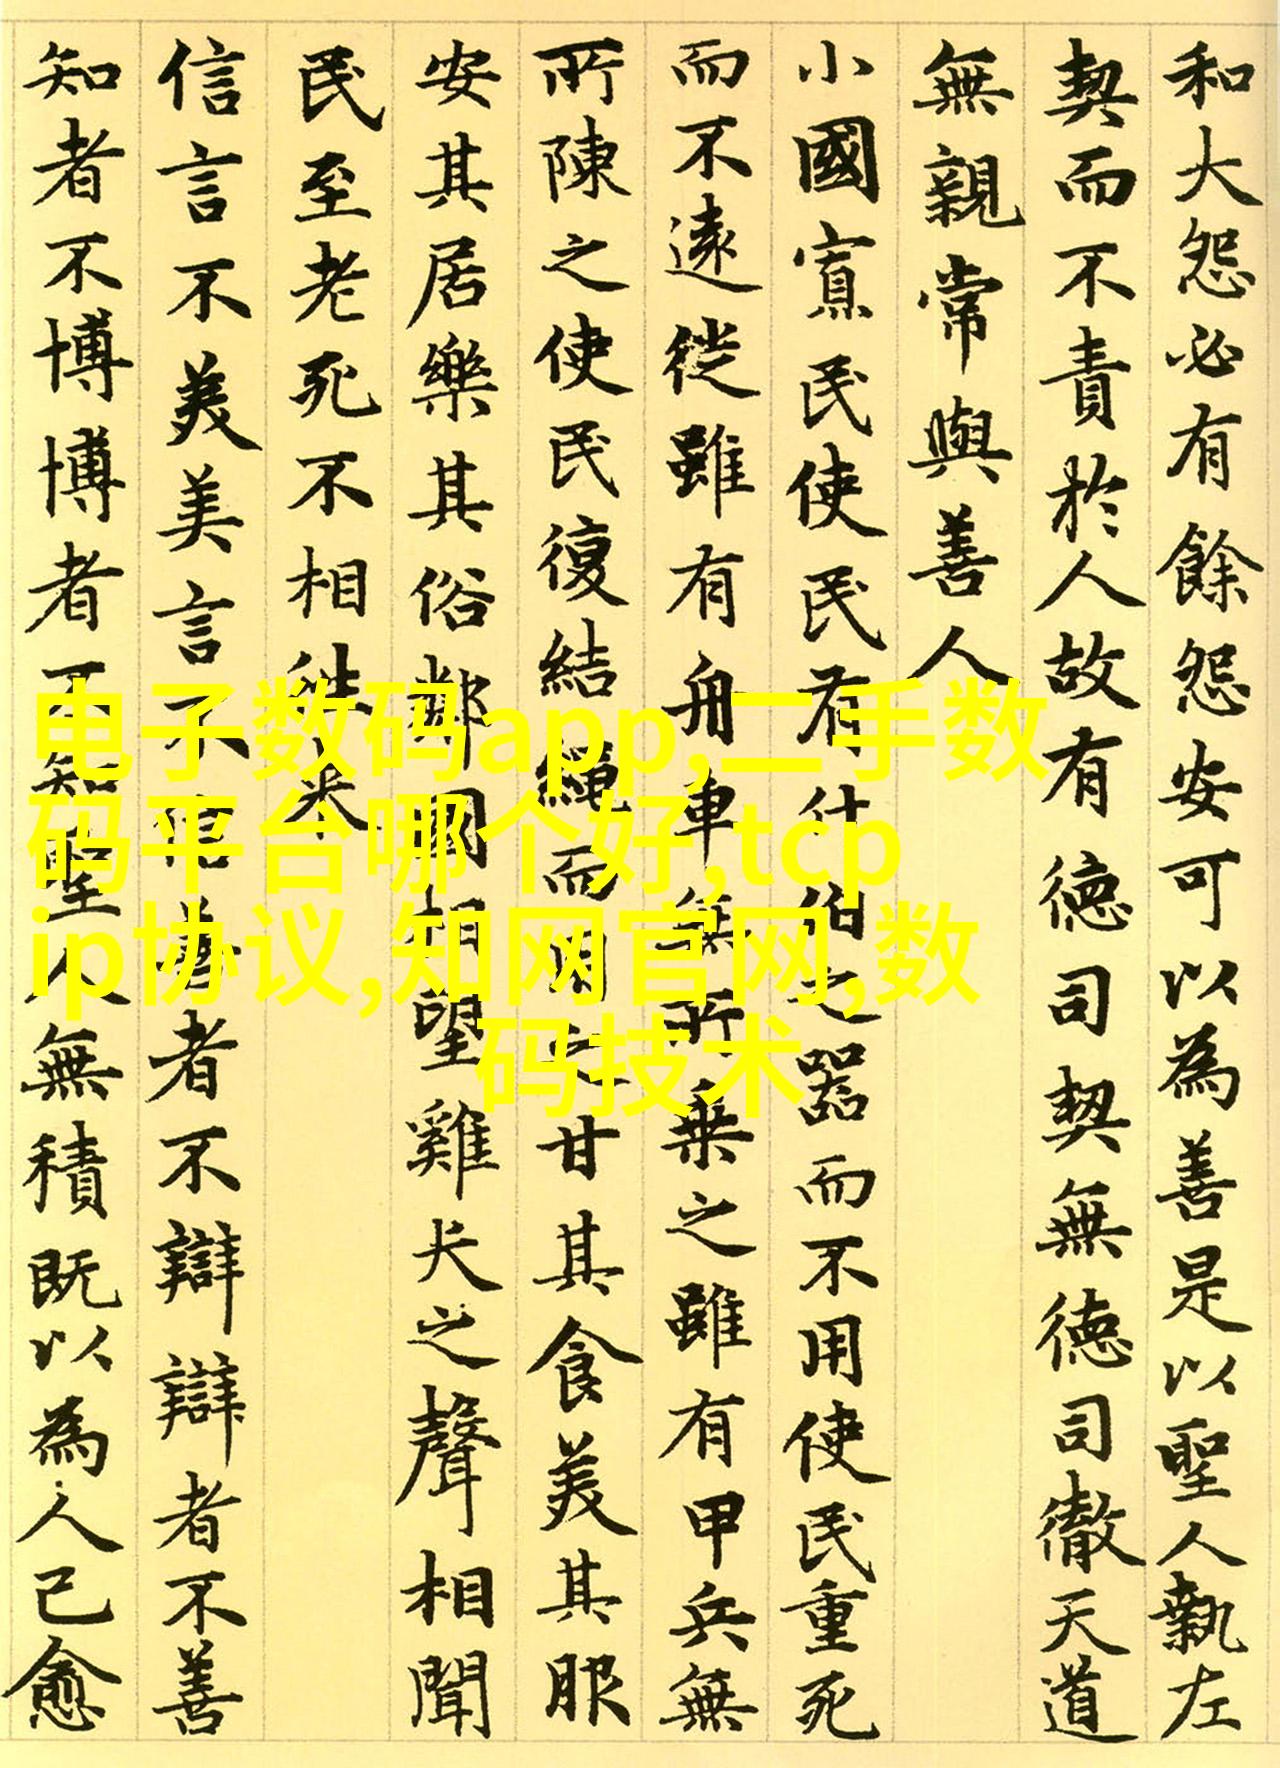 和大怨必有餘怨安可以為善是以聖人執左
契而不責於人故有德司契無德司徹天道
無親常與善人
小國寡民使民有什伯之器而不用使民重死
而不遠徙雖有舟車無所乗之雖有甲兵無
所陳之使民復結繩而用之甘其食美其服
安其居樂其俗鄰國相望雞犬之聲相聞
民至老死不相往来
信言不美美言不信善者不辯辯者不善
知者不博博者不知聖人無積既以為人己愈
电子数码app,二手数
码平台哪个好,tcp
ip协议,知网官网,数
码技术